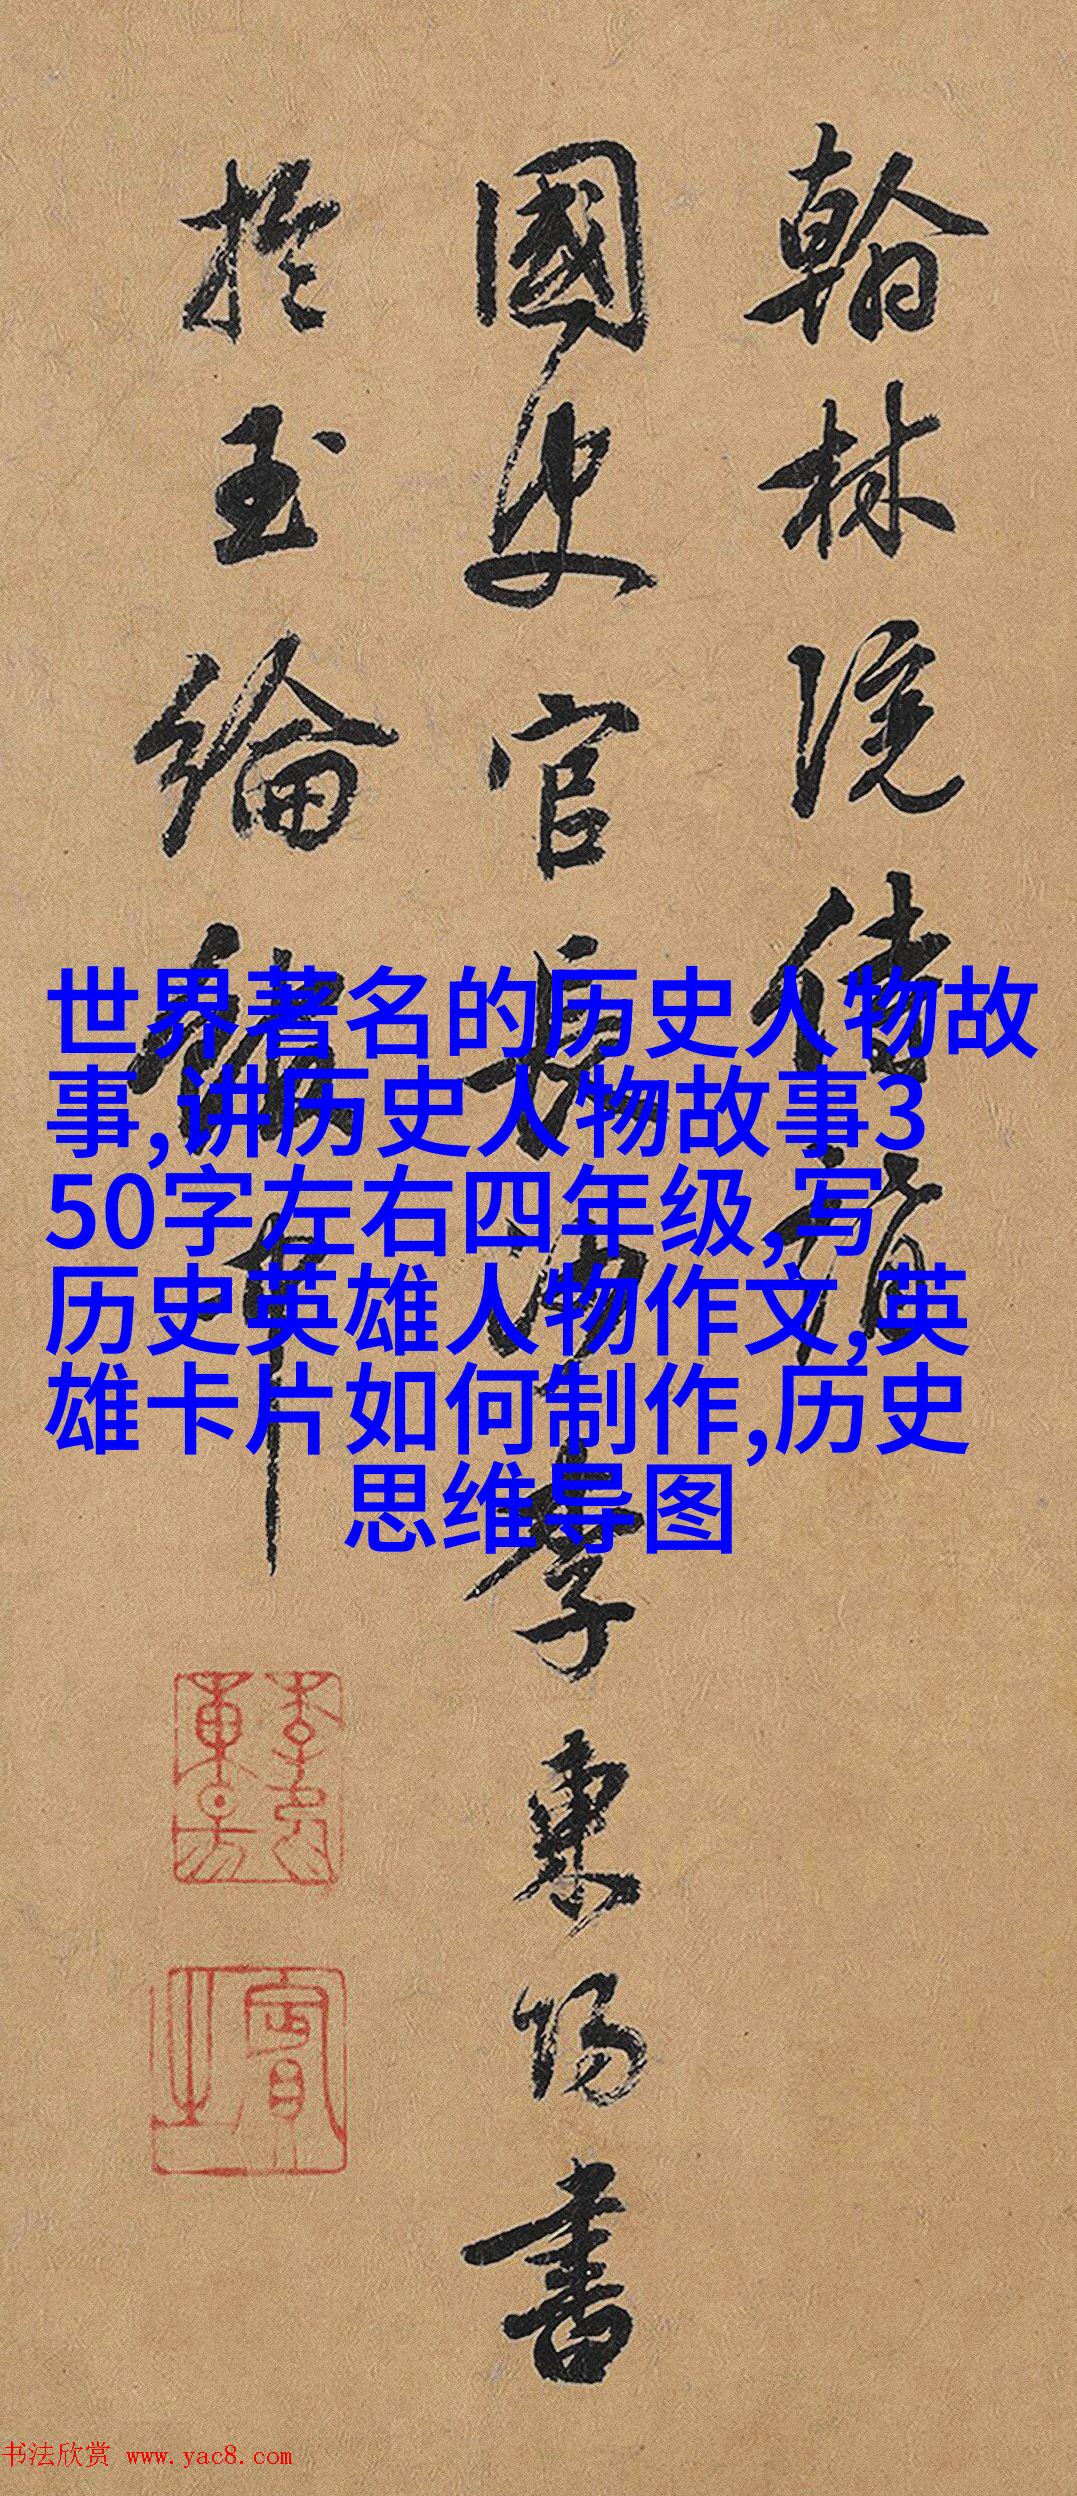 翰林院侍講
國史官長沙李東陽書
於玉綸館中
世界著名的历史人物故
事,讲历史人物故事3
50字左右四年级,写
历史英雄人物作文,英
雄卡片如何制作,历史
思维导图
书法欣赏 www.yac8.com